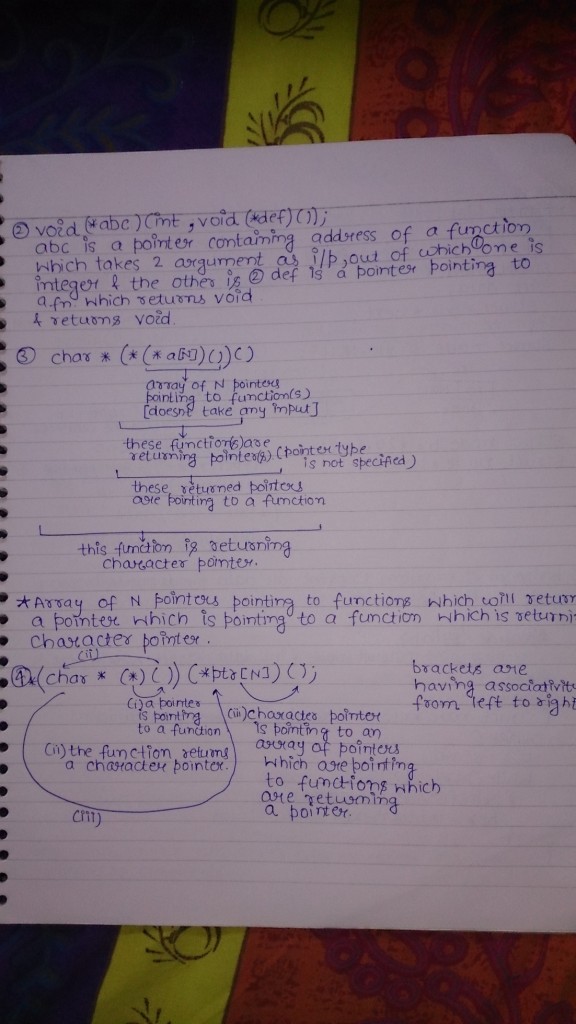 ② void (*abc)(int , void (*def)());
abc is a pointer containing address of a function
which takes 2 argument as i/p, out of which ① one is
integer & the other is ② def is a pointer pointing to
a fn. which returns void
& returns void.
③ char * (* (* a[N]) ()) ()
array of N pointers
pointing to function(s)
[doesnt take any input]
these function(s) are
returning pointer(s) (pointer type
is not specified)
these returned pointers
are pointing to a function
this function is returning
character pointer.
* Array of N pointers pointing to functions which will return
a pointer which is pointing to a function which is returni
character pointer.
(ii)
④ *(char * (*) ()) (*ptr[N]) ();
brackets are
having associativity
from left to right
(i) a pointer
is pointing
to a function
(ii) the function returns
a character pointer.
(iii) character pointer
is pointing to an
array of pointers
which are pointing
to functions which
are returning
a pointer.
(iii)